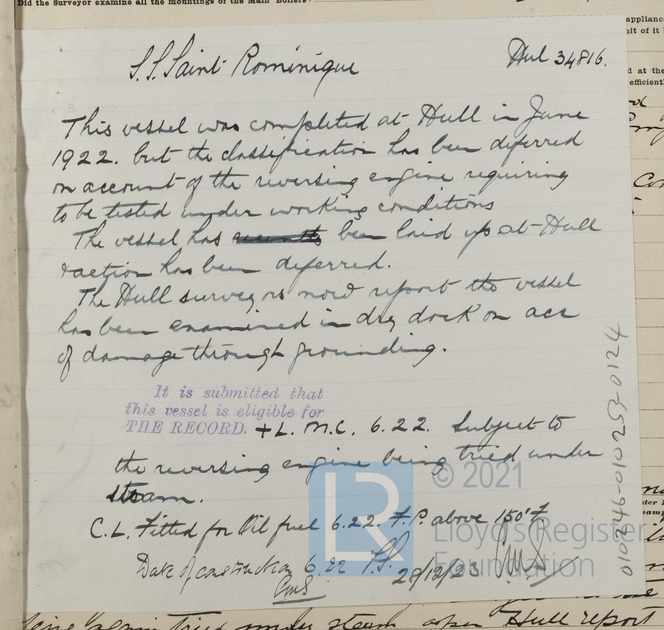 Did the Surveyor examine all the mountings of the Main Boilers?
S.S. Saint Rominique
Hul 34816.
This vessel was completed at Hull in June
1922. but the classification has been deferred
on account of the reversing engine requiring
to be tested under working conditions
The vessel has been laid up at Hull
& action has been deferred.
The Hull surveyors now report the vessel
has been examined in dry dock on acc
of damage through grounding.
It is submitted that
this vessel is eligible for
THE RECORD. + L.M.C. 6.22. Subject to
the reversing engine being tried under
steam.
C.L. Fitted for Oil fuel 6.22. F.P. above 150°F
Date of construction 6.22
28/12/23
© 2021
Lloyd's Register
Foundation
LR
010246-010253-0124
being again tried under steam Hull report